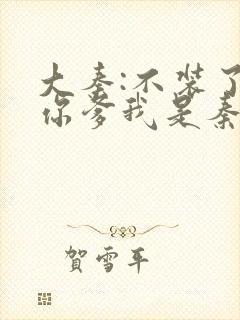 大秦:不装了
你爹我是秦
賀雪平